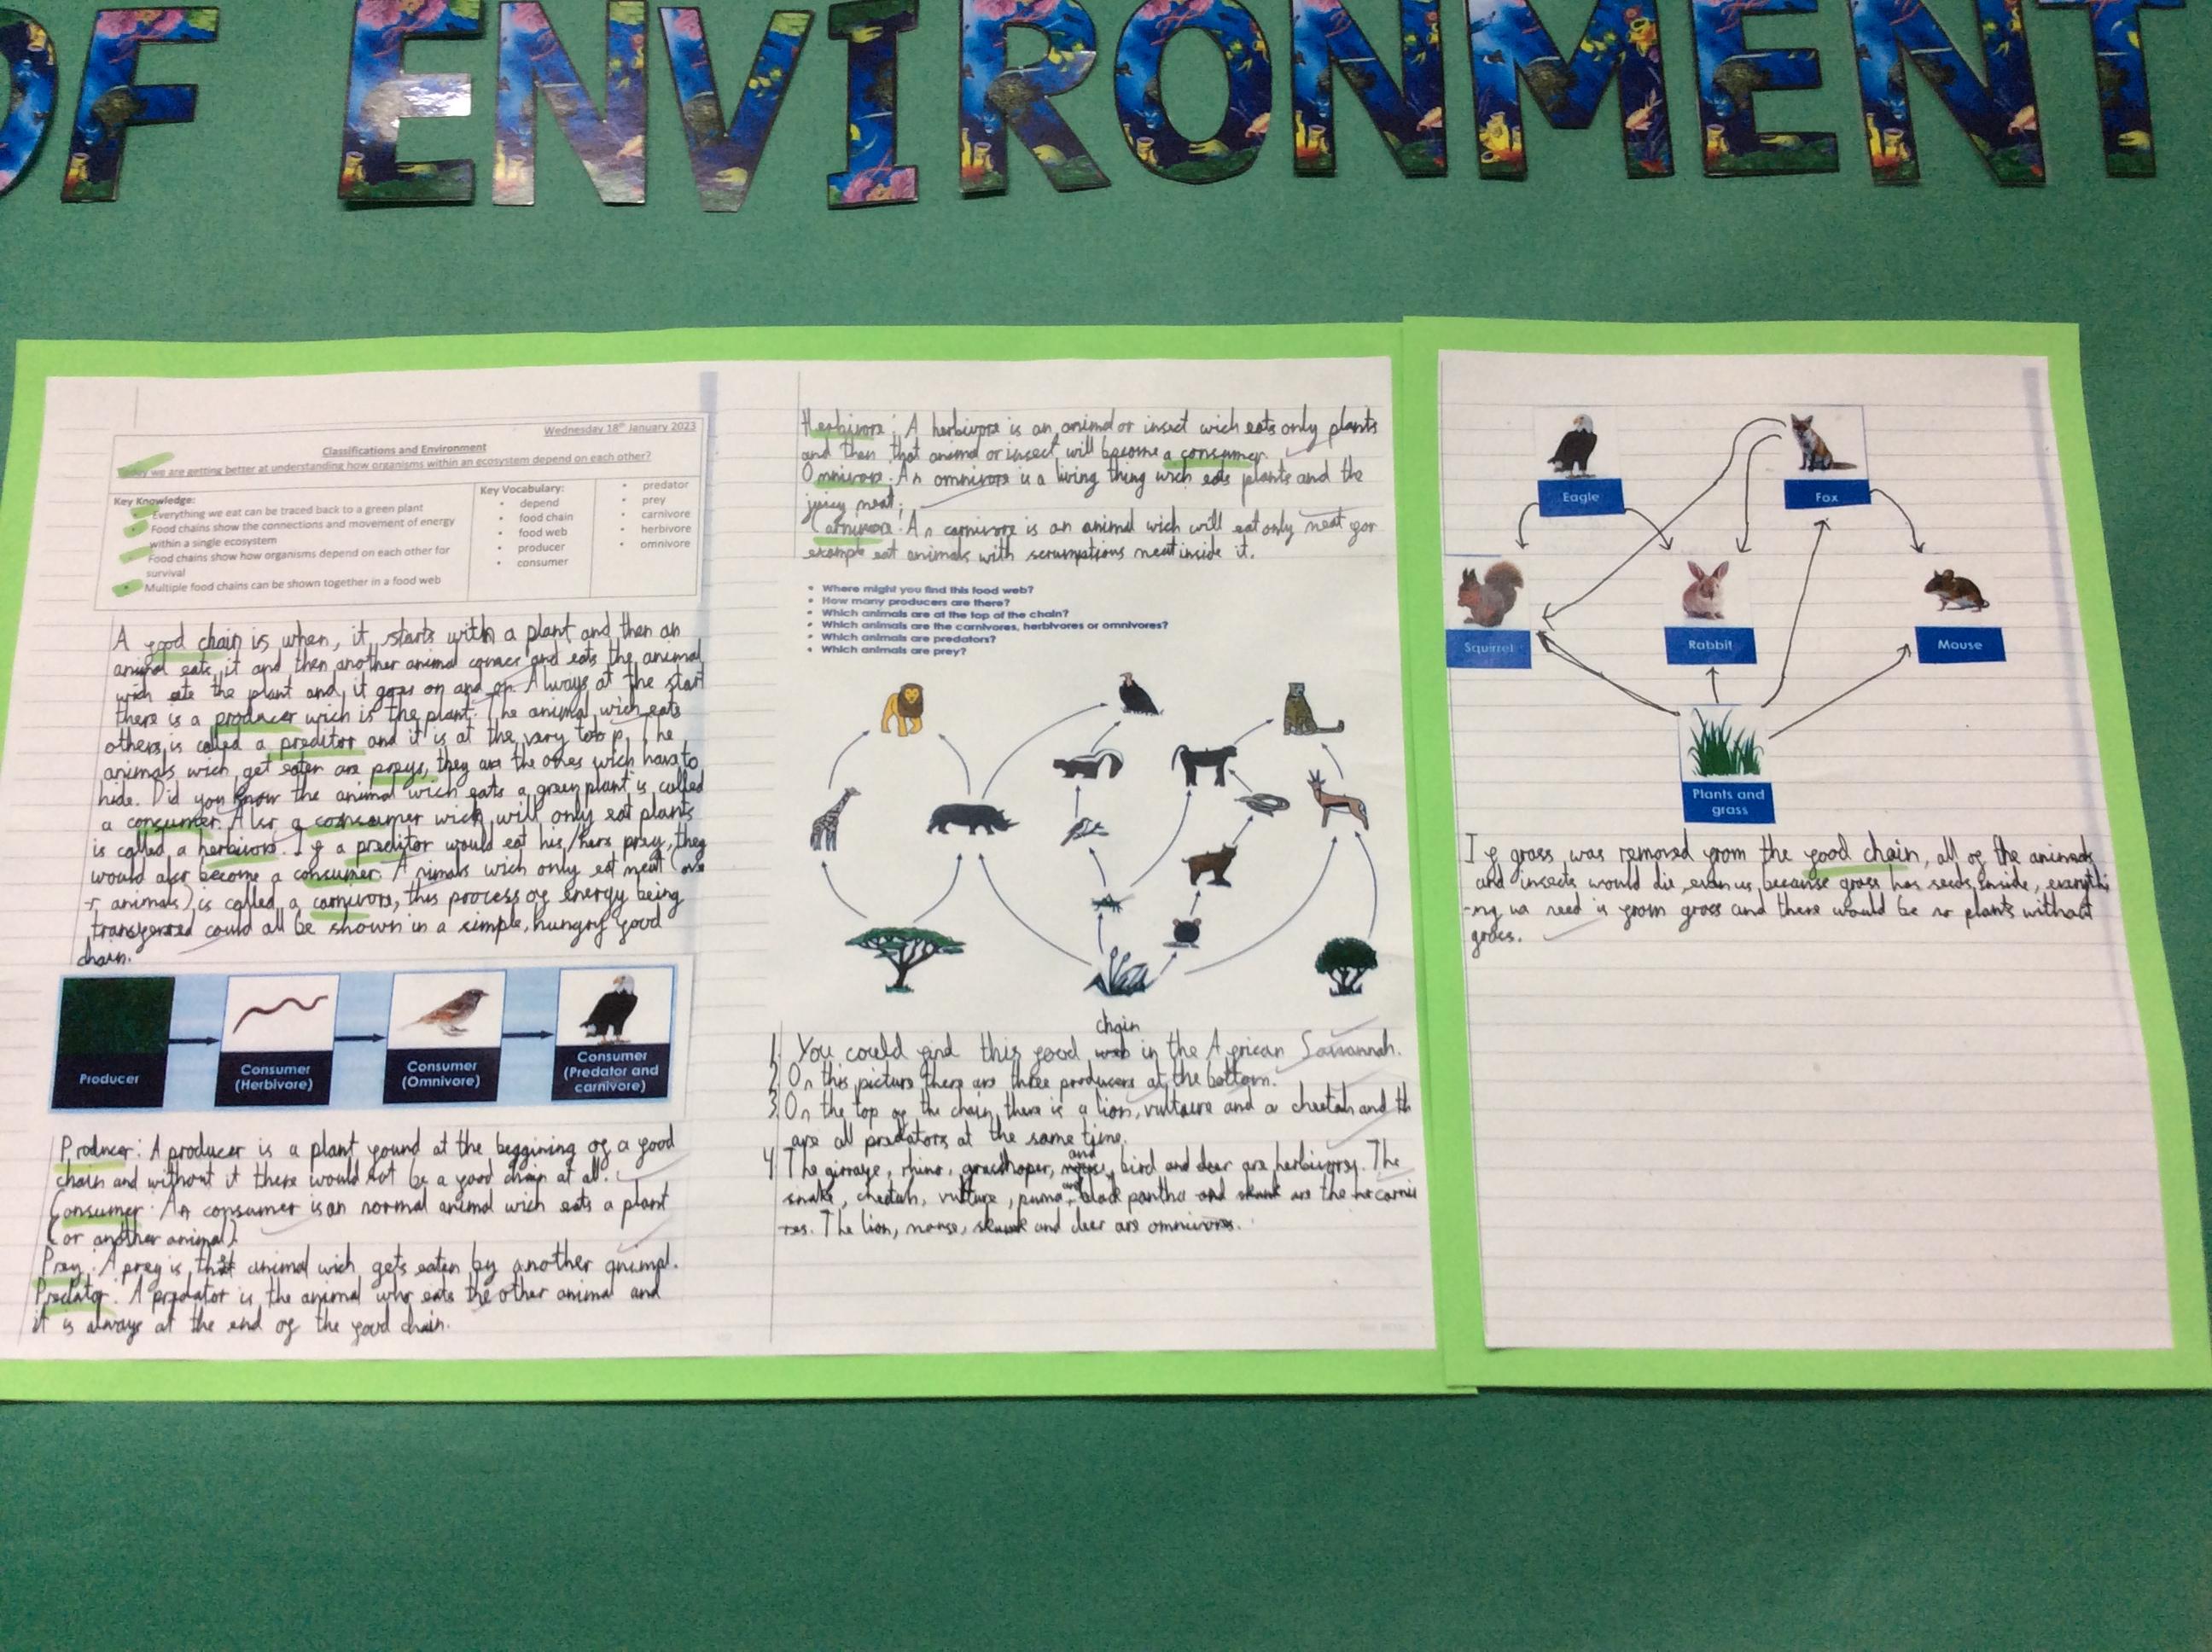 OF ENVIRONMENT
Wednesday 18th January 2023
Classifications and Environment
Today we are getting better at understanding how organisms within an ecosystem depend on each other?
Key Knowledge:
• Everything we eat can be traced back to a green plant
• Food chains show the connections and movement of energy
within a single ecosystem
• Food chains show how organisms depend on each other for
survival
• Multiple food chains can be shown together in a food web
Key Vocabulary:
• depend
• food chain
• food web
• producer
• consumer
• predator
• prey
• carnivore
• herbivore
• omnivore
A food chain is when, it starts with a plant and then an
animal eats it and then another animal comes and eats the animal
wich ate the plant and it goes on and on. Always at the start
there is a producer wich is the plant. The animal wich eats
others is called a preditor and it is at the very top. The
animals wich get eaten are preys, they are the ones wich have to
hide. Did you know the animal wich eats a green plant is called
a consumer. Also a consumer wich will only eat plants
is called a herbivore. If a preditor would eat his/hers prey, they
would also become a consumer. Animals wich only eat meat
animals) is called a carnivore, this process of energy being
transferred could all be shown in a simple, hungry food
chain.
Producer
Consumer
(Herbivore)
Consumer
(Omnivore)
Consumer
(Predator and
carnivore)
Producer: A producer is a plant found at the beggining of a food
chain and without it there would not be a food chain at all.
Consumer: An consumer is an normal animal wich eats a plant
(or another animal).
Prey: A prey is that animal wich gets eaten by another animal.
Predator: A predator is the animal who eats the other animal and
it is always at the end of the food chain.
Herbivore: A herbivore is an animal or insect wich eats only plants
and then that animal or insect will become a consumer.
Omnivore: An omnivore is a living thing wich eats plants and the
juicy meat.
Carnivore: An carnivore is an animal wich will eat only meat for
example eat animals with scrumptious meat inside it.
• Where might you find this food web?
• How many producers are there?
• Which animals are at the top of the chain?
• Which animals are the carnivores, herbivores or omnivores?
• Which animals are predators?
• Which animals are prey?
chain
1. You could find this food web in the African Savannah.
2. On this picture there are three producers at the bottom.
3. On the top of the chain there is a lion, vultaure and a cheetah and th
are all predators at the same time.
and
4 The giraffe, rhino, grasshoper, mouse, bird and deer are herbivors. The
and
snake, cheetah, vulture, puma, black panther and skunk are the carni
res. The lion, mouse, skunk and deer are omnivores.
Eagle
Fox
Squirrel
Rabbit
Mouse
Plants and
grass
If grass was removed from the food chain, all of the animals
and insects would die, even us because grass has seeds inside, everythi
-ng we need is from grass and there would be no plants without
grass.